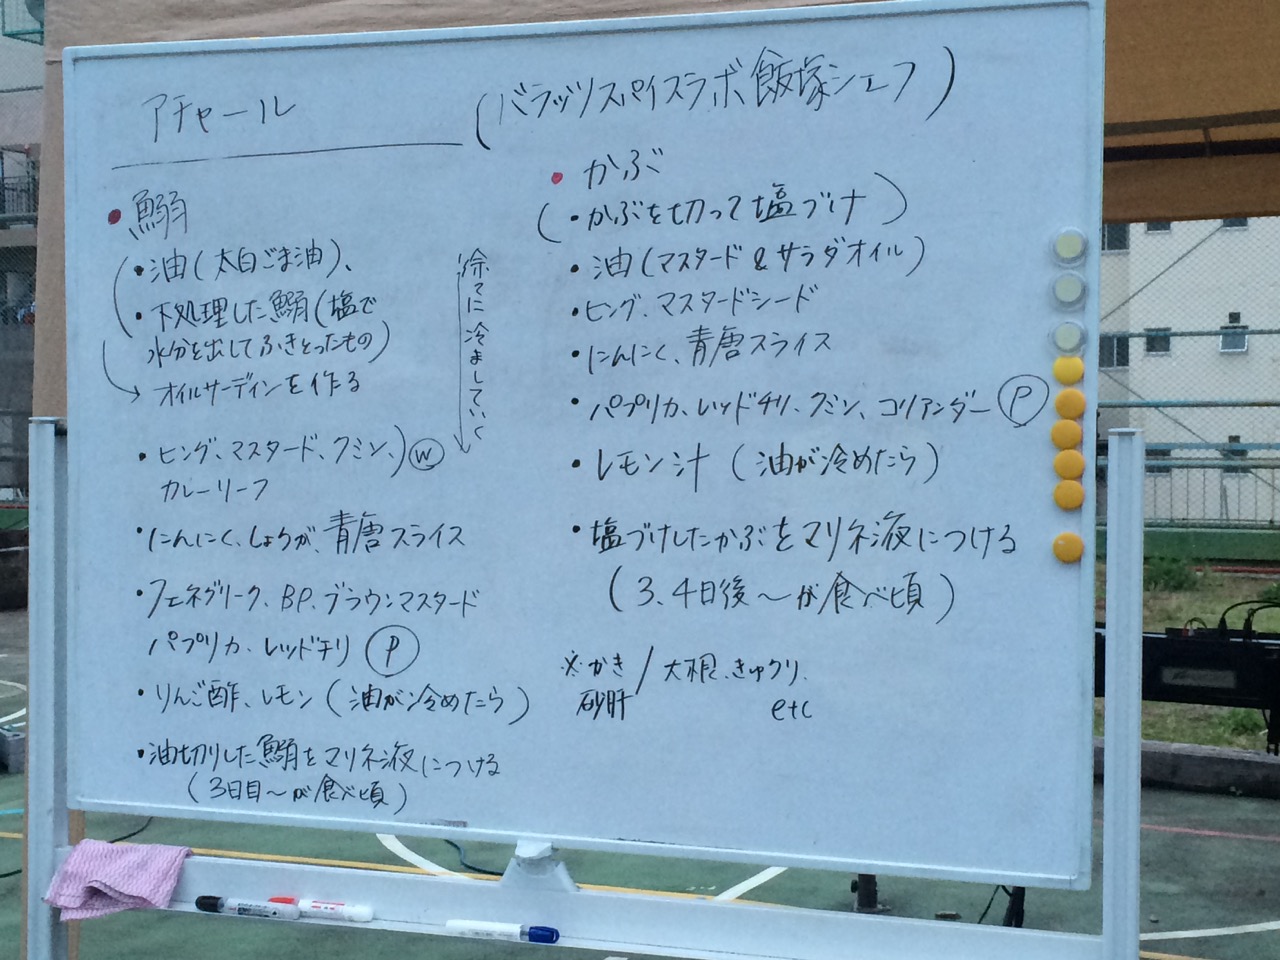 アチャール
(バラッツスパイスラボ 飯塚シェフ)
・鰯
・油(太白ごま油)、
・下処理した鰯(塩で
水分を出してふきとったもの)
→ オイルサーディンを作る
徐々に冷ましていく
・ヒング、マスタード、クミン、) W
カレーリーフ
・にんにく、しょうが、青唐スライス
・フェネグリーク、BP、ブラウンマスタード
パプリカ、レッドチリ P
・りんご酢、レモン(油が冷めたら)
・油切りした鰯をマリネ液につける
(3日目〜が食べ頃)
・かぶ
(・かぶを切って塩づけ)
・油(マスタード&サラダオイル)
・ヒング、マスタードシード
・にんにく、青唐スライス
・パプリカ、レッドチリ、クミン、コリアンダー P
・レモン汁(油が冷めたら)
・塩づけしたかぶをマリネ液につける
(3、4日後〜が食べ頃)
※かき/大根、きゅうり、
砂肝 etc